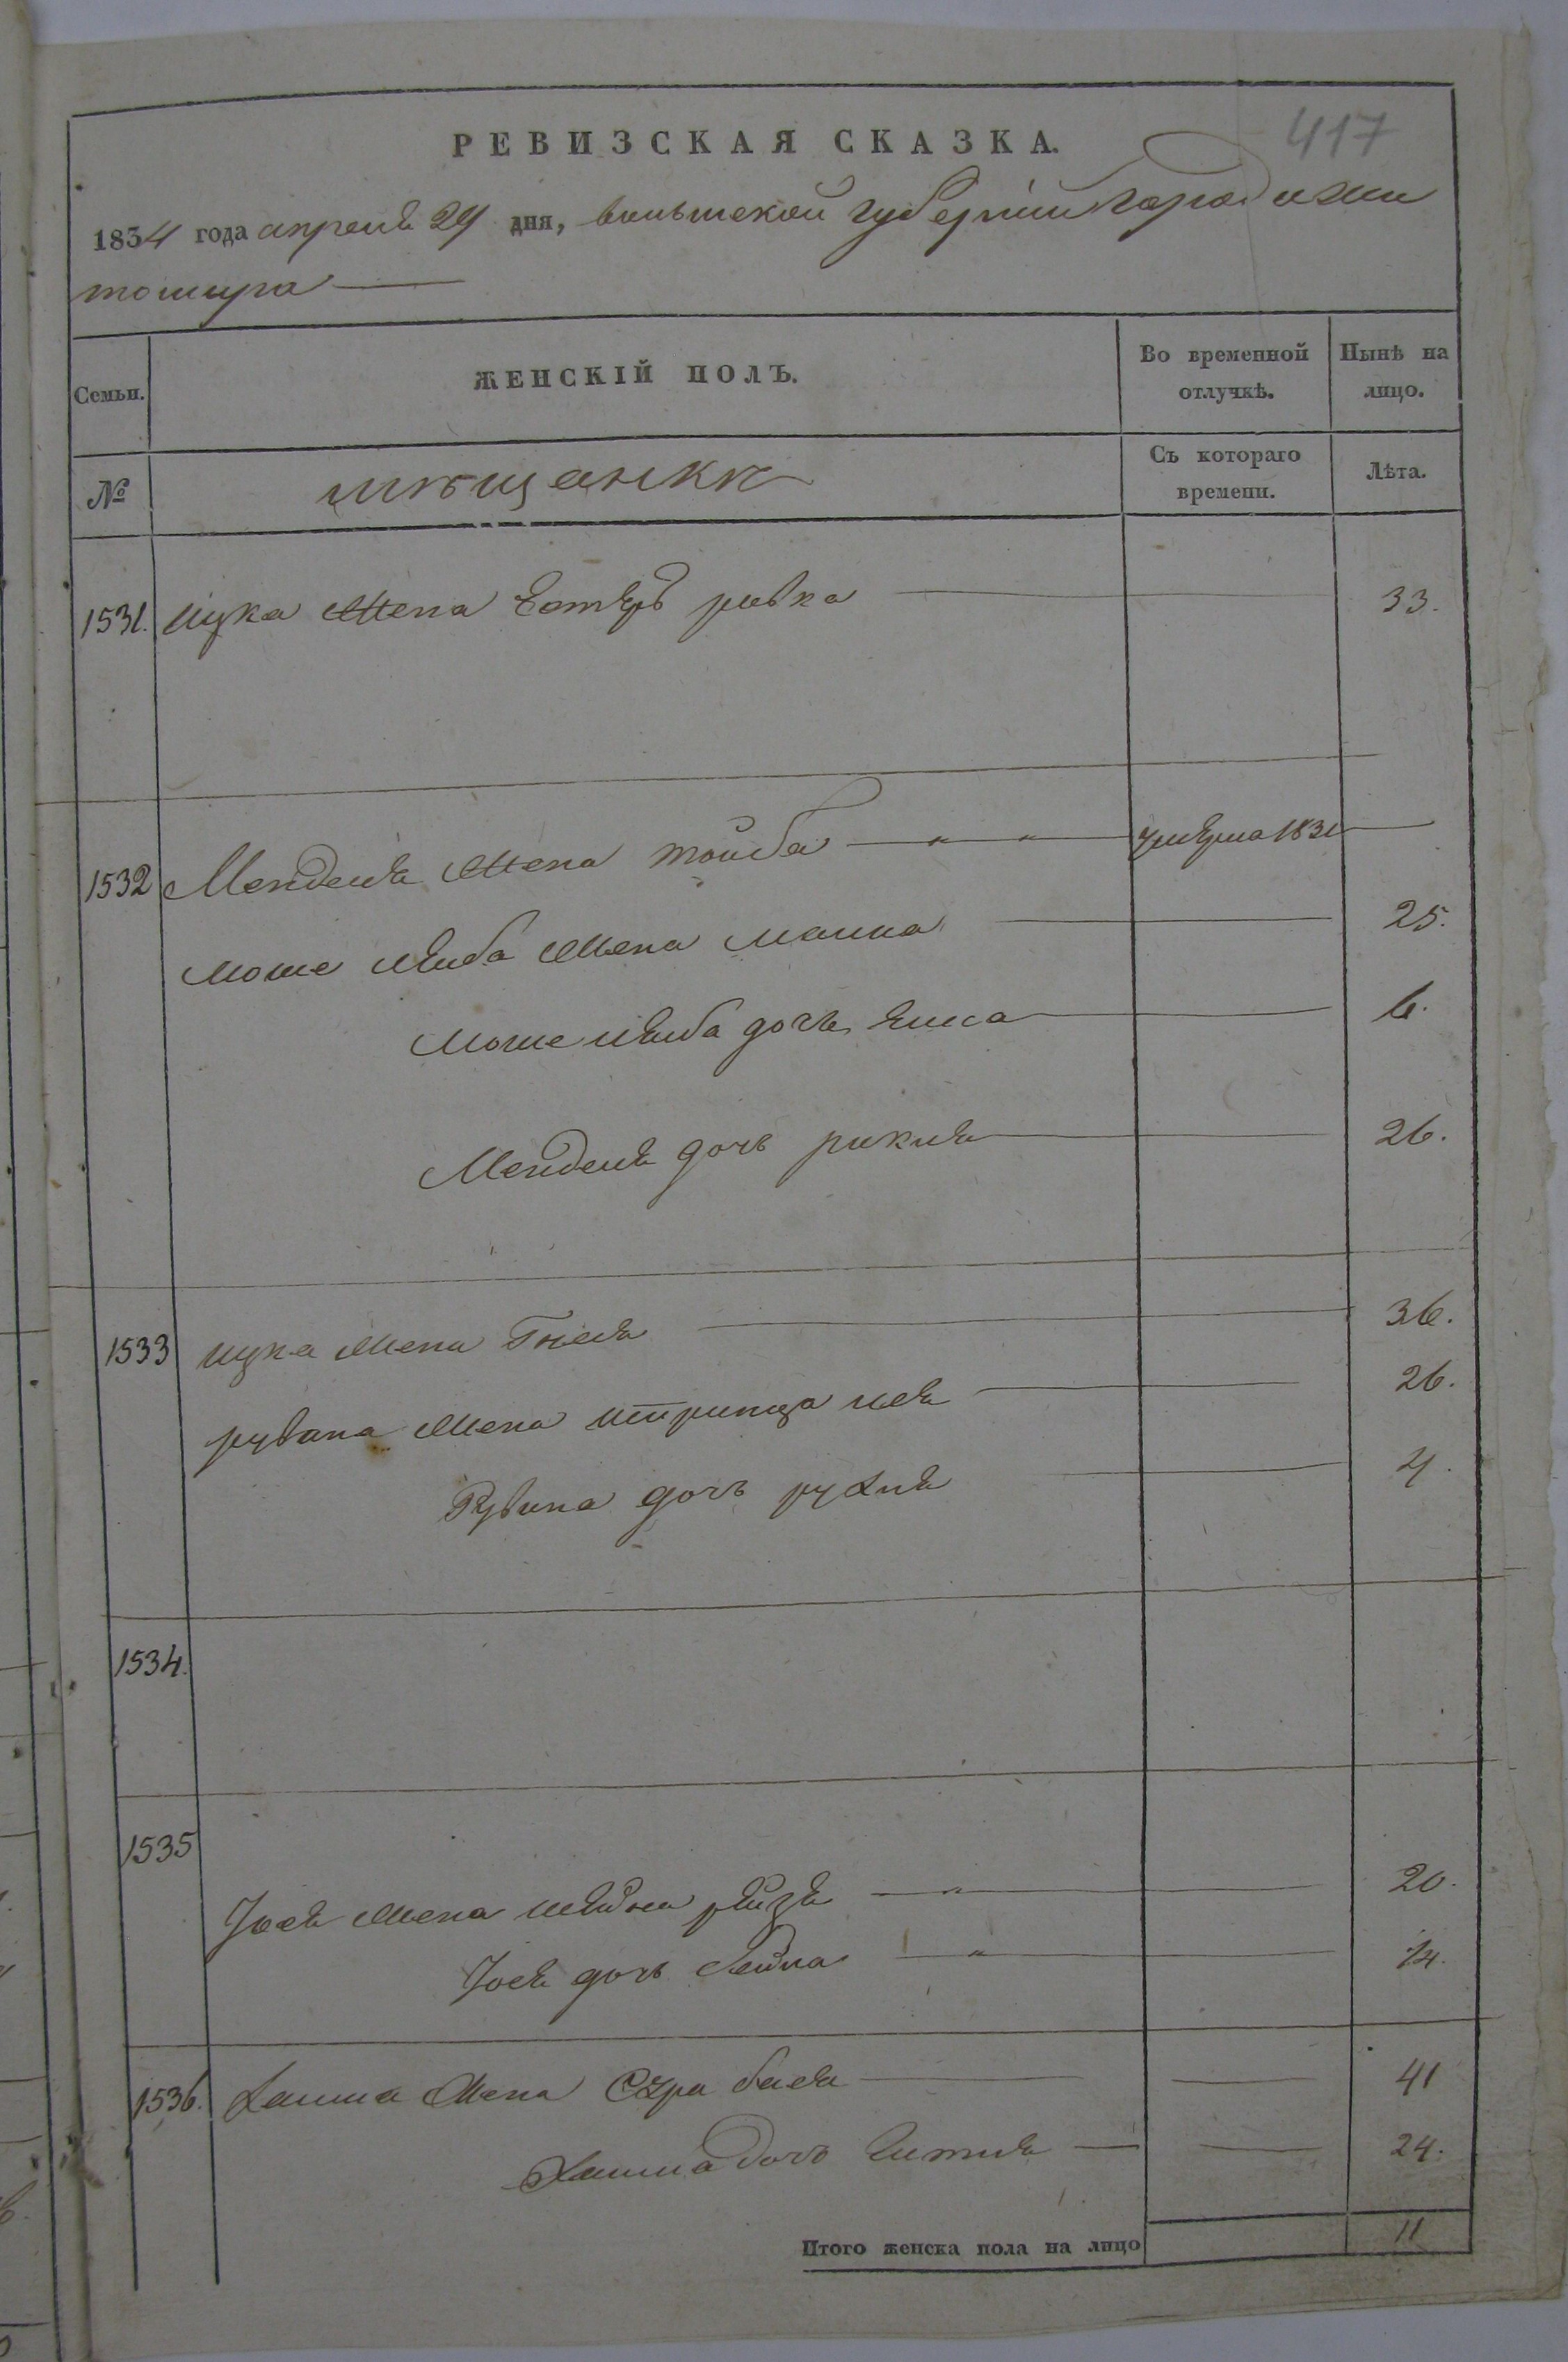 РЕВИЗСКАЯ СКАЗКА.
417
1834 года апреля 24 дня, виленской губернии города
Семьи.
ЖЕНСКІЙ ПОЛЪ.
Во временной отлучкѣ.
Нынѣ на лицо.
№
мещанки
Съ котораго времени.
Лѣта.
1531. ицка жена Естеръ ривка 33.
1532 Менделя жена тойба умерла 1831
моше лейба жена малка 25.
моше лейба дочь 6.
Менделя дочь рикля 26.
1533 ицка жена Гнеся 36.
рувина жена шпринца лея 26.
Рувина дочь рухля 4.
1534.
1535
Іося жена шейна рейзя 20.
Іося дочь 14.
1536. Хаима жена Сора бася 41
Хаима дочь 24.
Итого женска пола на лицо 11